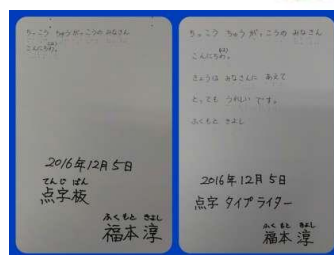 ちっこう ちゅうがっこうの みなさん
こんにちわ。
2016年12月5日
てんじばん
点字板
ふくもと きよし
福本 淳
ちっこう ちゅうがっこうの みなさん
こんにちわ。
きょうは みなさんに あえて
とっても うれしい です。
ふくもと きよし
2016年12月5日
点字 タイプライター
ふくもと きよし
福本 淳